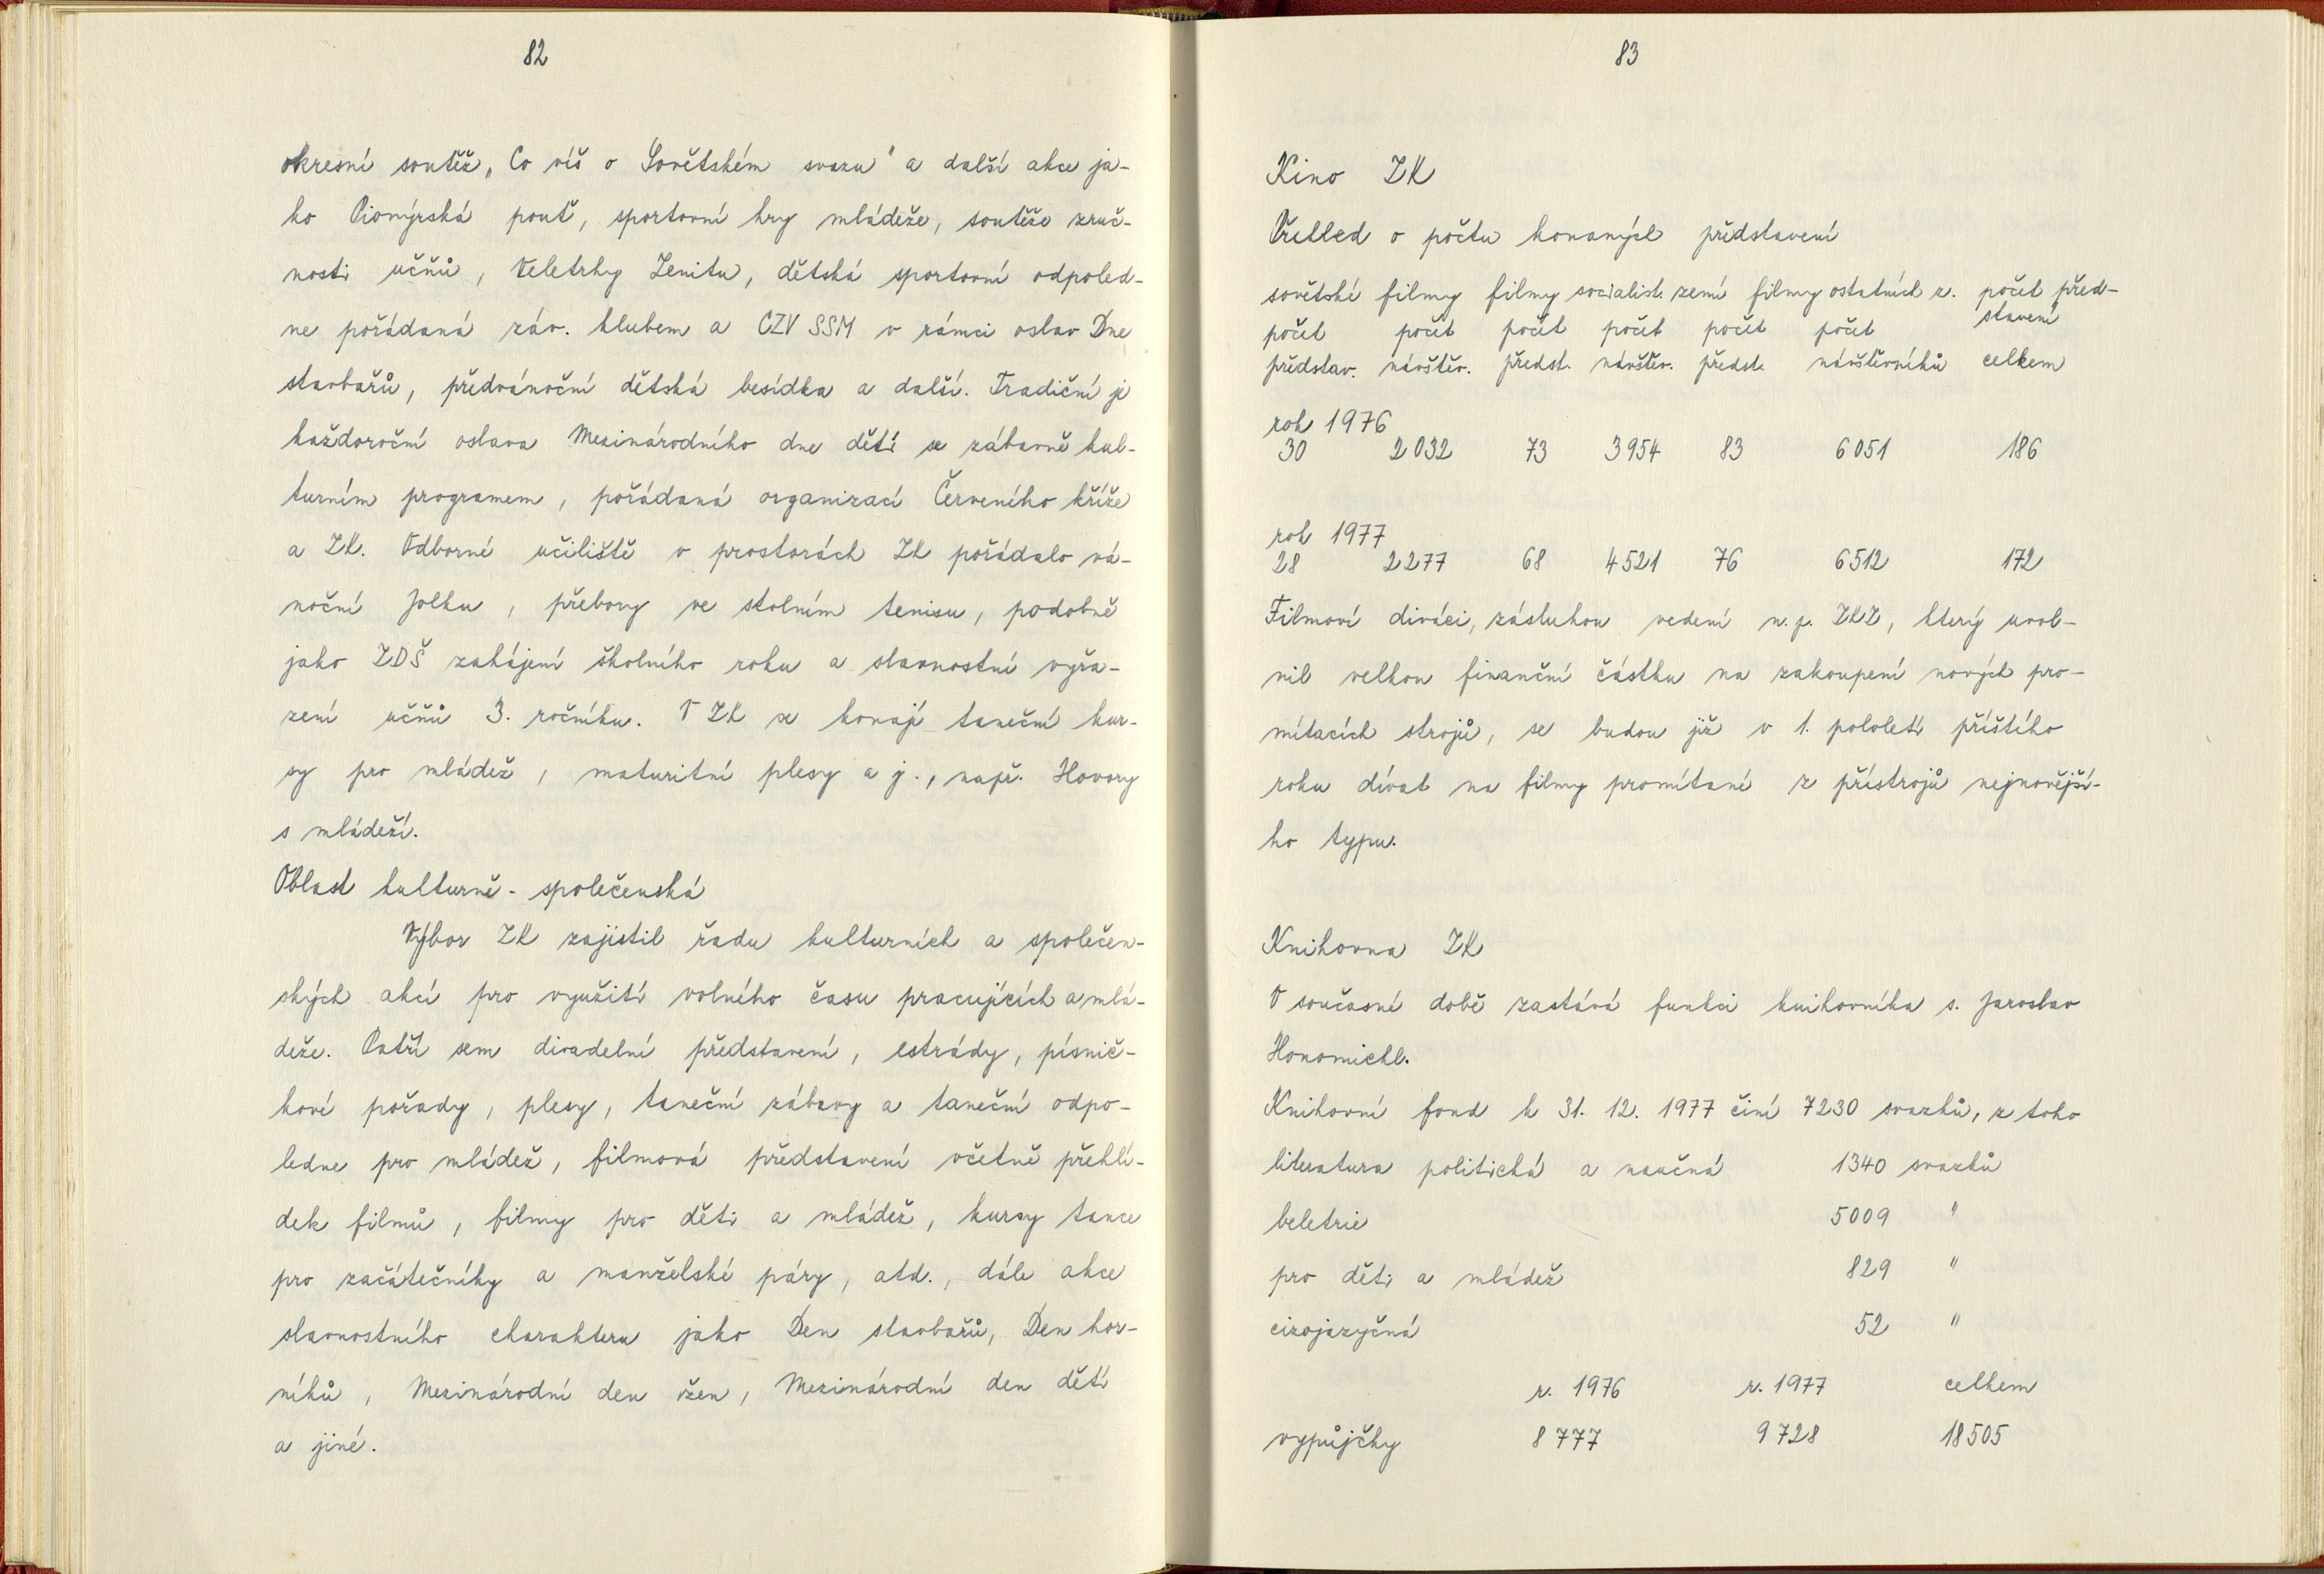 82
okresní soutěž „Co víš o Sovětském svazu" a další akce ja-
ko Pionýrská pouť, sportovní hry mládeže, soutěže zruč-
nosti učňů, Veletrhy Zenitu, dětská sportovní odpoled-
ne pořádaná záv. klubem a CZV SSM v rámci oslav Dne
stavbařů, předvánoční dětská besídka a další. Tradiční je
každoroční oslava Mezinárodního dne dětí se zábavně kul-
turním programem, pořádaná organizací Červeného kříže
a ZK. Odborné učiliště v prostorách ZK pořádalo vá-
noční Jolku, přebory ve stolním tenisu, podobně
jako ZDŠ zahájení školního roku a slavnostní vyřa-
zení učňů 3. ročníku. V ZK se konají taneční kur-
sy pro mládež, maturitní plesy a j., např. Hovory
s mládeží.
Oblast kulturně - společenská
Výbor ZK zajistil řadu kulturních a společen-
ských akcí pro využití volného času pracujících a mlá-
deže. Patří sem divadelní představení, estrády, písnič-
kové pořady, plesy, taneční zábavy a taneční odpo-
ledne pro mládež, filmová představení včetně přehlí-
dek filmů, filmy pro děti a mládež, kursy tance
pro začátečníky a manželské páry, atd., dále akce
slavnostního charakteru jako Den stavbařů, Den hor-
níků, Mezinárodní den žen, Mezinárodní den dětí
a jiné.
83
Kino ZK
Přehled o počtu konaných představení
sovětské filmy filmy socialist. zemí filmy ostatních z. počet před-
stavení
počet počet počet počet počet počet
představ. návštěv. předst. návštěv. předst. návštěvníků celkem
rok 1976
30 2032 73 3954 83 6051 186
rok 1977
28 2277 68 4521 76 6512 172
Filmoví diváci, zásluhou vedení n. p. ZKZ, který uvol-
nil velkou finanční částku na zakoupení nových pro-
mítacích strojů, se budou již v 1. pololetí příštího
roku dívat na filmy promítané z přístrojů nejnovější-
ho typu.
Knihovna ZK
V současné době zastává funkci knihovníka s. Jaroslav
Honomichl.
Knihovní fond k 31. 12. 1977 činí 7230 svazků, z toho
literatura politická a naučná 1340 svazků
beletrie 5009 "
pro děti a mládež 829 "
cizojazyčná 52 "
r. 1976 r. 1977 celkem
vypůjčky 8777 9728 18505